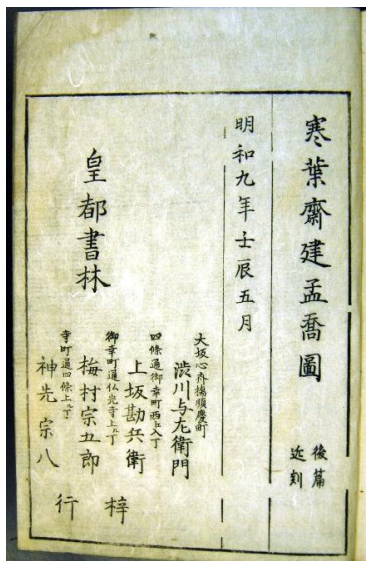 寒葉齋建孟喬圖
後篇
近刻
明和九年壬辰五月
大坂心斉橋順慶町
渋川与左衛門
四條通御幸町西ヘ入丁
上坂勘兵衛
御幸町通仏光寺上ル丁
梅村宗五郎
寺町通四條上ル丁
神先宗八
皇都書林
梓行